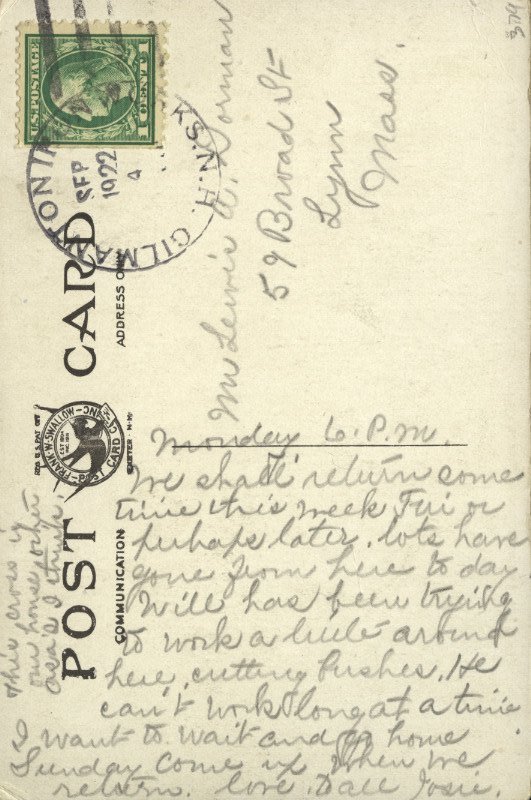 379
U.S. POSTAGE
1 CENT 1
GILMANTON
N.H.
SEP
4
1922
POST CARD
COMMUNICATION
ADDRESS ONLY
REG. U.S. PAT. OFF.
FRANK W. SWALLOW
POST CARD CO. INC.
EXETER N.H.
Mr Lewis A. Dorman
59 Broad St
Lynn
Mass.
Monday 6 P.M.
We shall return some
time this week Fri or
perhaps later. lots have
gone from here to day
Will has been trying
to work a little around
here, cutting bushes. He
can't work long at a time
I want to wait and go home
Sunday Come up when we
return. love. Josie.
This cross is
our house other
I think.